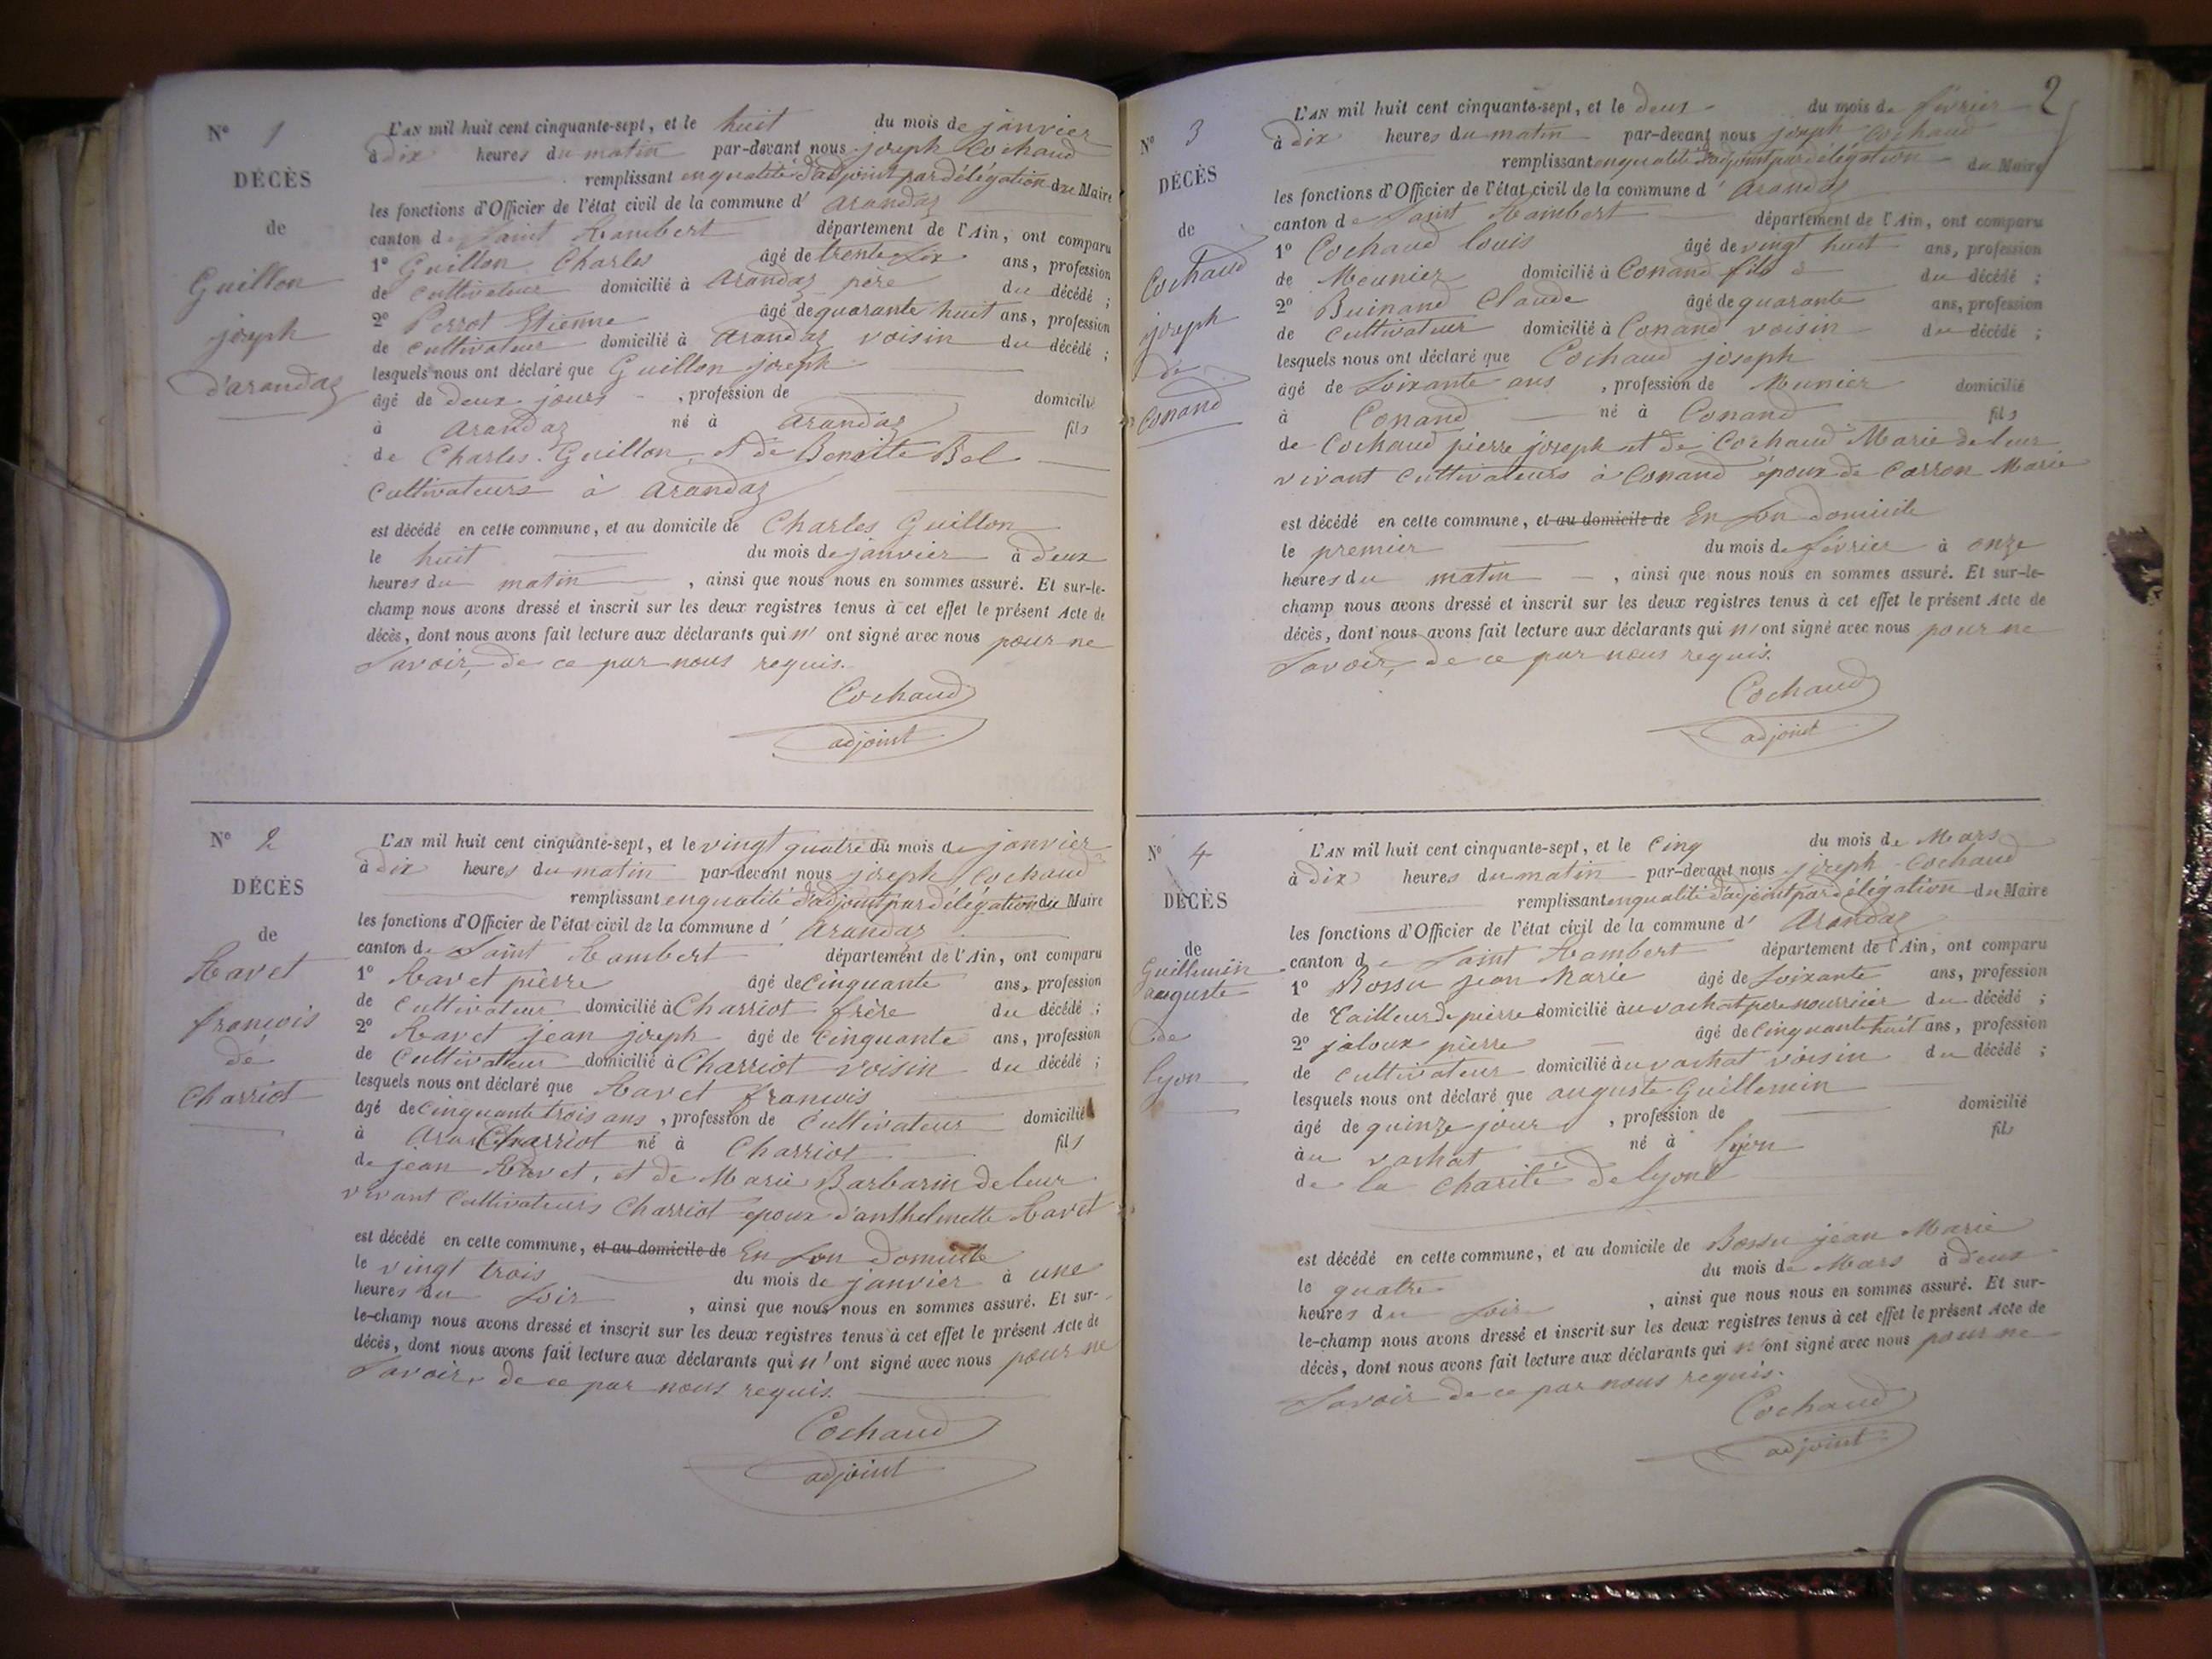 N° 1
DÉCÈS
de
Guillon
joseph
d'arandaz
L'AN mil huit cent cinquante-sept, et le huit du mois de janvier
à dix heures du matin par-devant nous joseph Cochaud
remplissant en qualité d'adjoint par délégation du Maire
les fonctions d'Officier de l'état civil de la commune d' arandaz
canton de Saint Rambert département de l'Ain, ont comparu
1° Guillon Charles âgé de trente six ans, profession
de cultivateur domicilié à arandaz père du décédé ;
2° Perrot Etienne âgé de quarante huit ans, profession
de cultivateur domicilié à arandaz voisin du décédé ;
lesquels nous ont déclaré que Guillon joseph
âgé de deux jours , profession de domicilié
à arandaz né à arandaz fils
de Charles Guillon et de Benoite Bel
Cultivateurs à arandaz
est décédé en cette commune, et au domicile de Charles Guillon
le huit du mois de janvier à deux
heures du matin , ainsi que nous nous en sommes assuré. Et sur-le-
champ nous avons dressé et inscrit sur les deux registres tenus à cet effet le présent Acte de
décès, dont nous avons fait lecture aux déclarants qui n' ont signé avec nous pour ne
Savoir, de ce par nous requis.
Cochaud
adjoint
N° 2
DÉCÈS
de
Ravet
francois
de
Charriot
L'AN mil huit cent cinquante-sept, et le vingt quatre du mois de janvier
à dix heures du matin par-devant nous joseph Cochaud
remplissant en qualité d'adjoint par délégation du Maire
les fonctions d'Officier de l'état civil de la commune d' arandaz
canton de Saint Rambert département de l'Ain, ont comparu
1° Ravet pierre âgé de cinquante ans, profession
de cultivateur domicilié à Charriot frère du décédé ;
2° Ravet jean joseph âgé de cinquante ans, profession
de Cultivateur domicilié à Charriot voisin du décédé ;
lesquels nous ont déclaré que Ravet francois
âgé de cinquante trois ans , profession de Cultivateur domicilié
à Charriot né à Charriot fils
de jean Ravet, et de Marie Barbarin de leur
vivant Cultivateurs Charriot epoux d'anthelmette Ravet
est décédé en cette commune, et au domicile de En Son Domicile
le vingt trois du mois de janvier à une
heures du Soir , ainsi que nous nous en sommes assuré. Et sur-
le-champ nous avons dressé et inscrit sur les deux registres tenus à cet effet le présent Acte de
décès, dont nous avons fait lecture aux déclarants qui n' ont signé avec nous pour ne
Savoir, de ce par nous requis.
Cochaud
adjoint
2
N° 3
DÉCÈS
de
Cochaud
joseph
de
Conand
L'AN mil huit cent cinquante-sept, et le deux du mois de février
à dix heures du matin par-devant nous joseph Cochaud
remplissant en qualité d'adjoint par délégation du Maire
les fonctions d'Officier de l'état civil de la commune d' arandaz
canton de Saint Rambert département de l'Ain, ont comparu
1° Cochaud louis âgé de vingt huit ans, profession
de Meunier domicilié à Conand fils du décédé ;
2° Buinand Claude âgé de quarante ans, profession
de Cultivateur domicilié à Conand voisin du décédé ;
lesquels nous ont déclaré que Cochaud joseph
âgé de Soixante ans , profession de Munier domicilié
à Conand né à Conand fils
de Cochaud pierre joseph et de Cochaud Marie de leur
vivant Cultivateurs à Conand époux de Carron Marie
est décédé en cette commune, et au domicile de En Son Domicile
le premier du mois de février à onze
heures du matin , ainsi que nous nous en sommes assuré. Et sur-le-
champ nous avons dressé et inscrit sur les deux registres tenus à cet effet le présent Acte de
décès, dont nous avons fait lecture aux déclarants qui n' ont signé avec nous pour ne
Savoir, de ce par nous requis.
Cochaud
adjoint
N° 4
DÉCÈS
de
Guillemin
auguste
de
lyon
L'AN mil huit cent cinquante-sept, et le Cinq du mois de Mars
à Dix heures du matin par-devant nous joseph Cochaud
remplissant en qualité d'adjoint par délégation du Maire
les fonctions d'Officier de l'état civil de la commune d' Arandaz
canton de Saint Rambert département de l'Ain, ont comparu
1° Bossu jean Marie âgé de Soixante ans, profession
de Tailleur de pierre domicilié au vachat pere nourricier du décédé ;
2° jaloux pierre âgé de cinquante huit ans, profession
de cultivateur domicilié au vachat voisin du décédé ;
lesquels nous ont déclaré que auguste Guillemin
âgé de quinze jours , profession de domicilié
au vachat né à lyon fils
de la charité de lyon
est décédé en cette commune, et au domicile de Bossu jean Marie
le quatre du mois de Mars à deux
heures du Soir , ainsi que nous nous en sommes assuré. Et sur-
le-champ nous avons dressé et inscrit sur les deux registres tenus à cet effet le présent Acte de
décès, dont nous avons fait lecture aux déclarants qui n' ont signé avec nous pour ne
Savoir de ce par nous requis.
Cochaud
adjoint